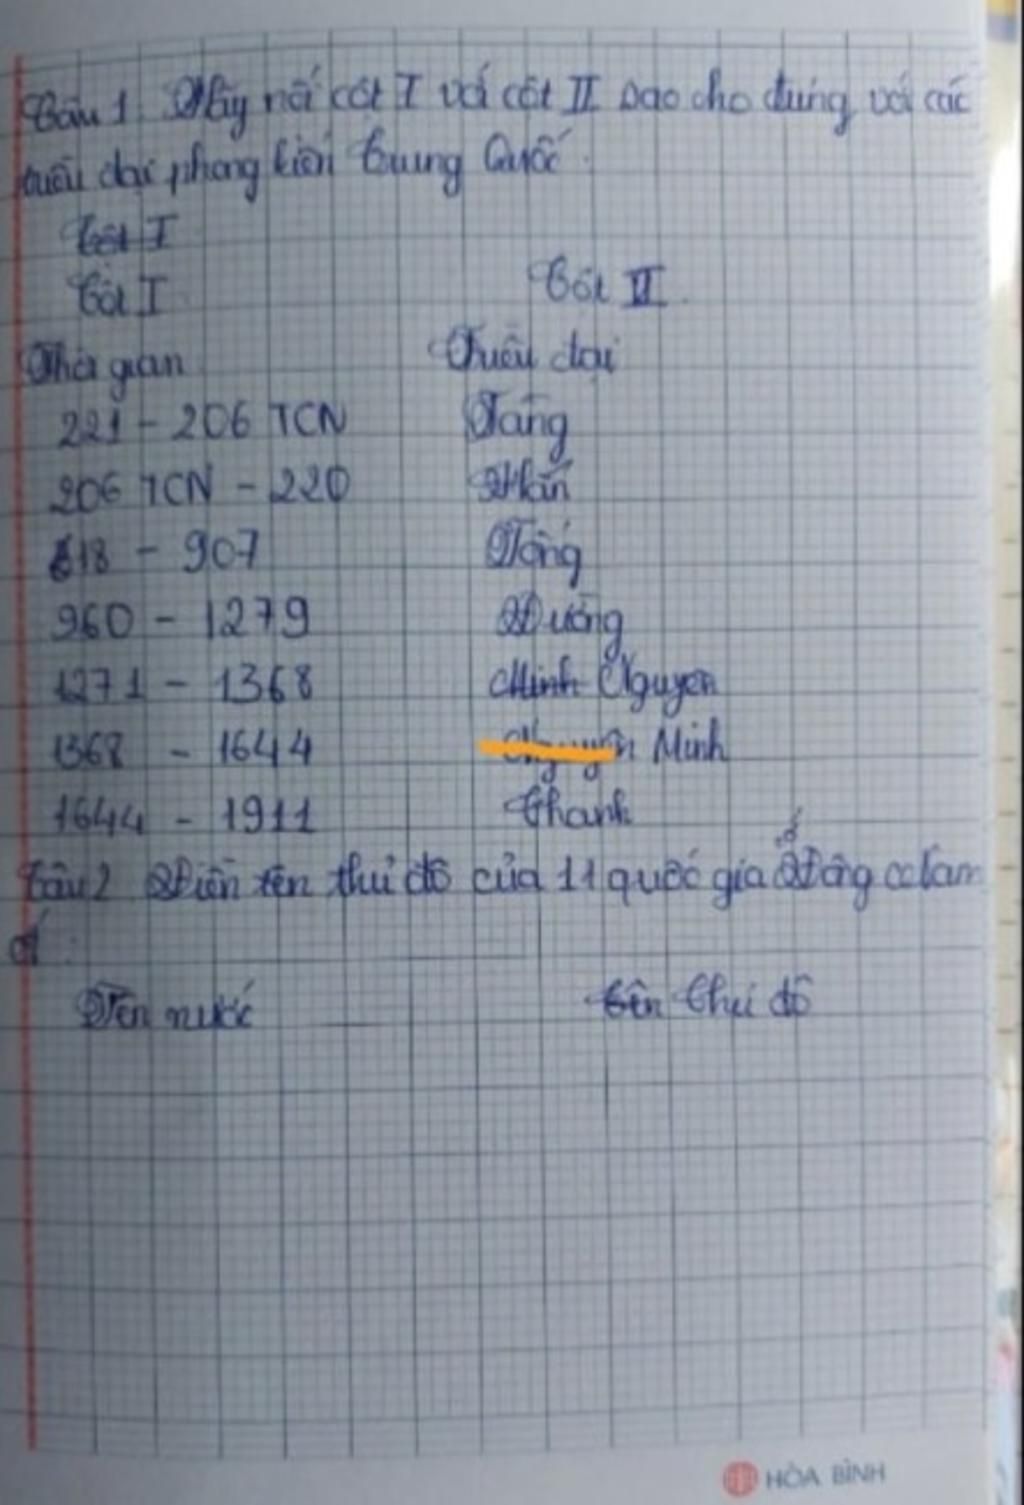 Câu 1. Hãy nối cột I với cột II sao cho đúng với các
triều đại phong kiến Trung Quốc.
Cột I
Cột I Cột II
Thời gian Triều đại
221 - 206 TCN Tần
206 TCN - 220 Hán
618 - 907 Tống
960 - 1279 Đường
1271 - 1368 Minh Nguyên
1368 - 1644 Nguyên Minh
1644 - 1911 Thanh
Câu 2 Điền tên thủ đô của 11 quốc gia ở Đông Nam
Á:
Tên nước Tên thủ đô
HÒA BÌNH